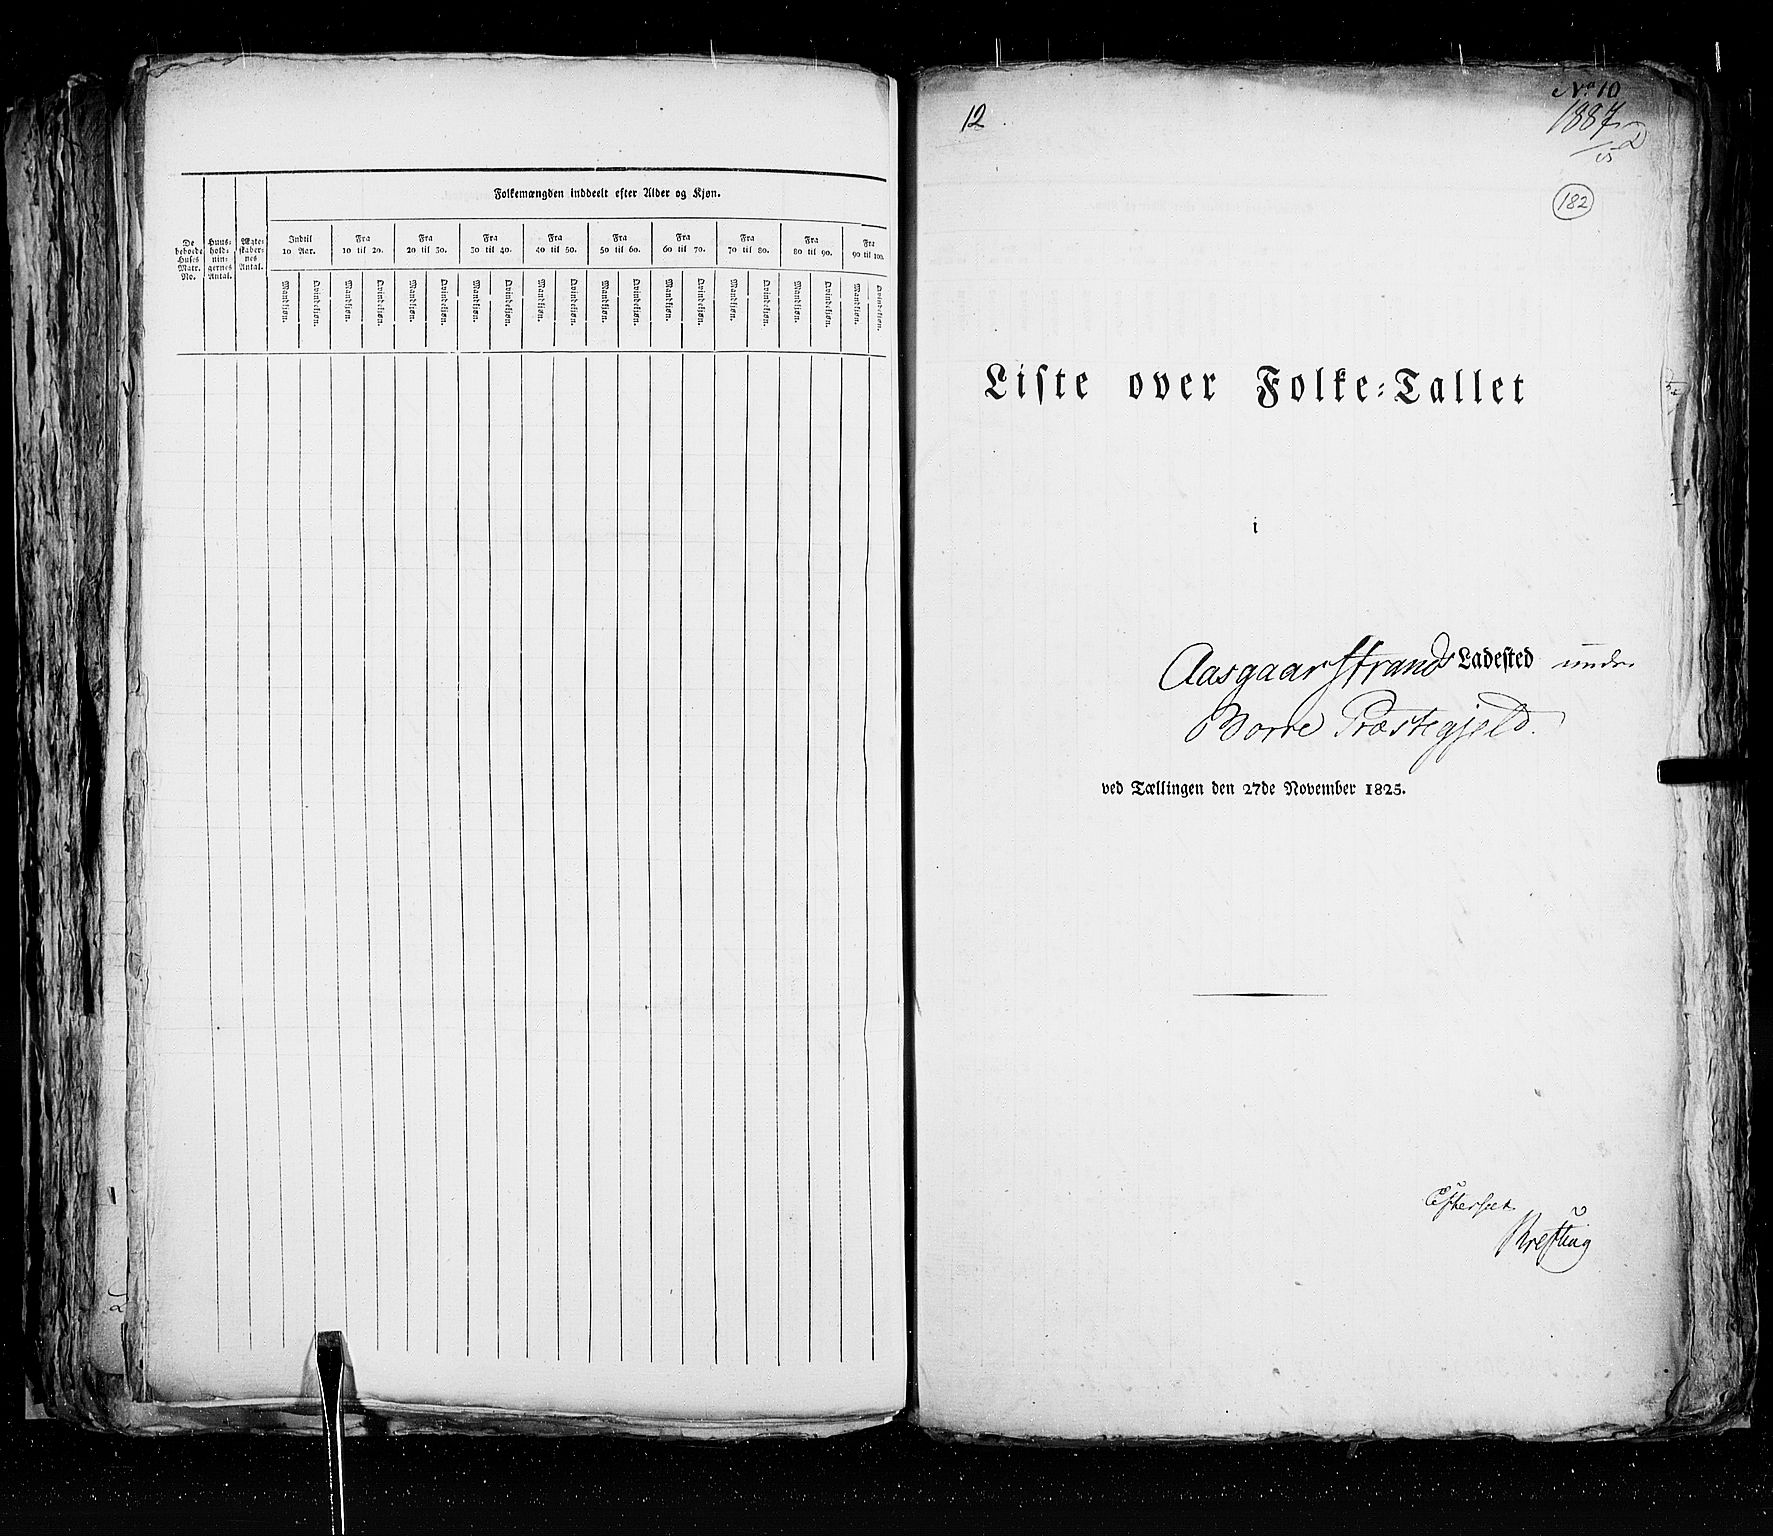 Folkemængden inddeelt efter Alder og Kjøn.
De beboede Huses Matr. No.
Huus-hold-nin-gernes Antal.
Ægte-skaber-nes Antal.
Indtil 10 Aar.
Fra 10 til 20.
Fra 20 til 30.
Fra 30 til 40.
Fra 40 til 50.
Fra 50 til 60.
Fra 60 til 70.
Fra 70 til 80.
Fra 80 til 90.
Fra 90 til 100.
Mandkjøn. Qvindekjøn. Mandkjøn. Qvindekjøn. Mandkjøn. Qvindekjøn. Mandkjøn. Qvindekjøn. Mandkjøn. Qvindekjøn. Mandkjøn. Qvindekjøn. Mandkjøn. Qvindekjøn. Mandkjøn. Qvindekjøn. Mandkjøn. Qvindekjøn. Mandkjøn. Qvindekjøn.
12
No. 10
182
Liste over Folke-Tallet
i
Aasgaarstrands Ladested under
Borre Præstegjeld.
ved Tællingen den 27de November 1825.
Efterseet